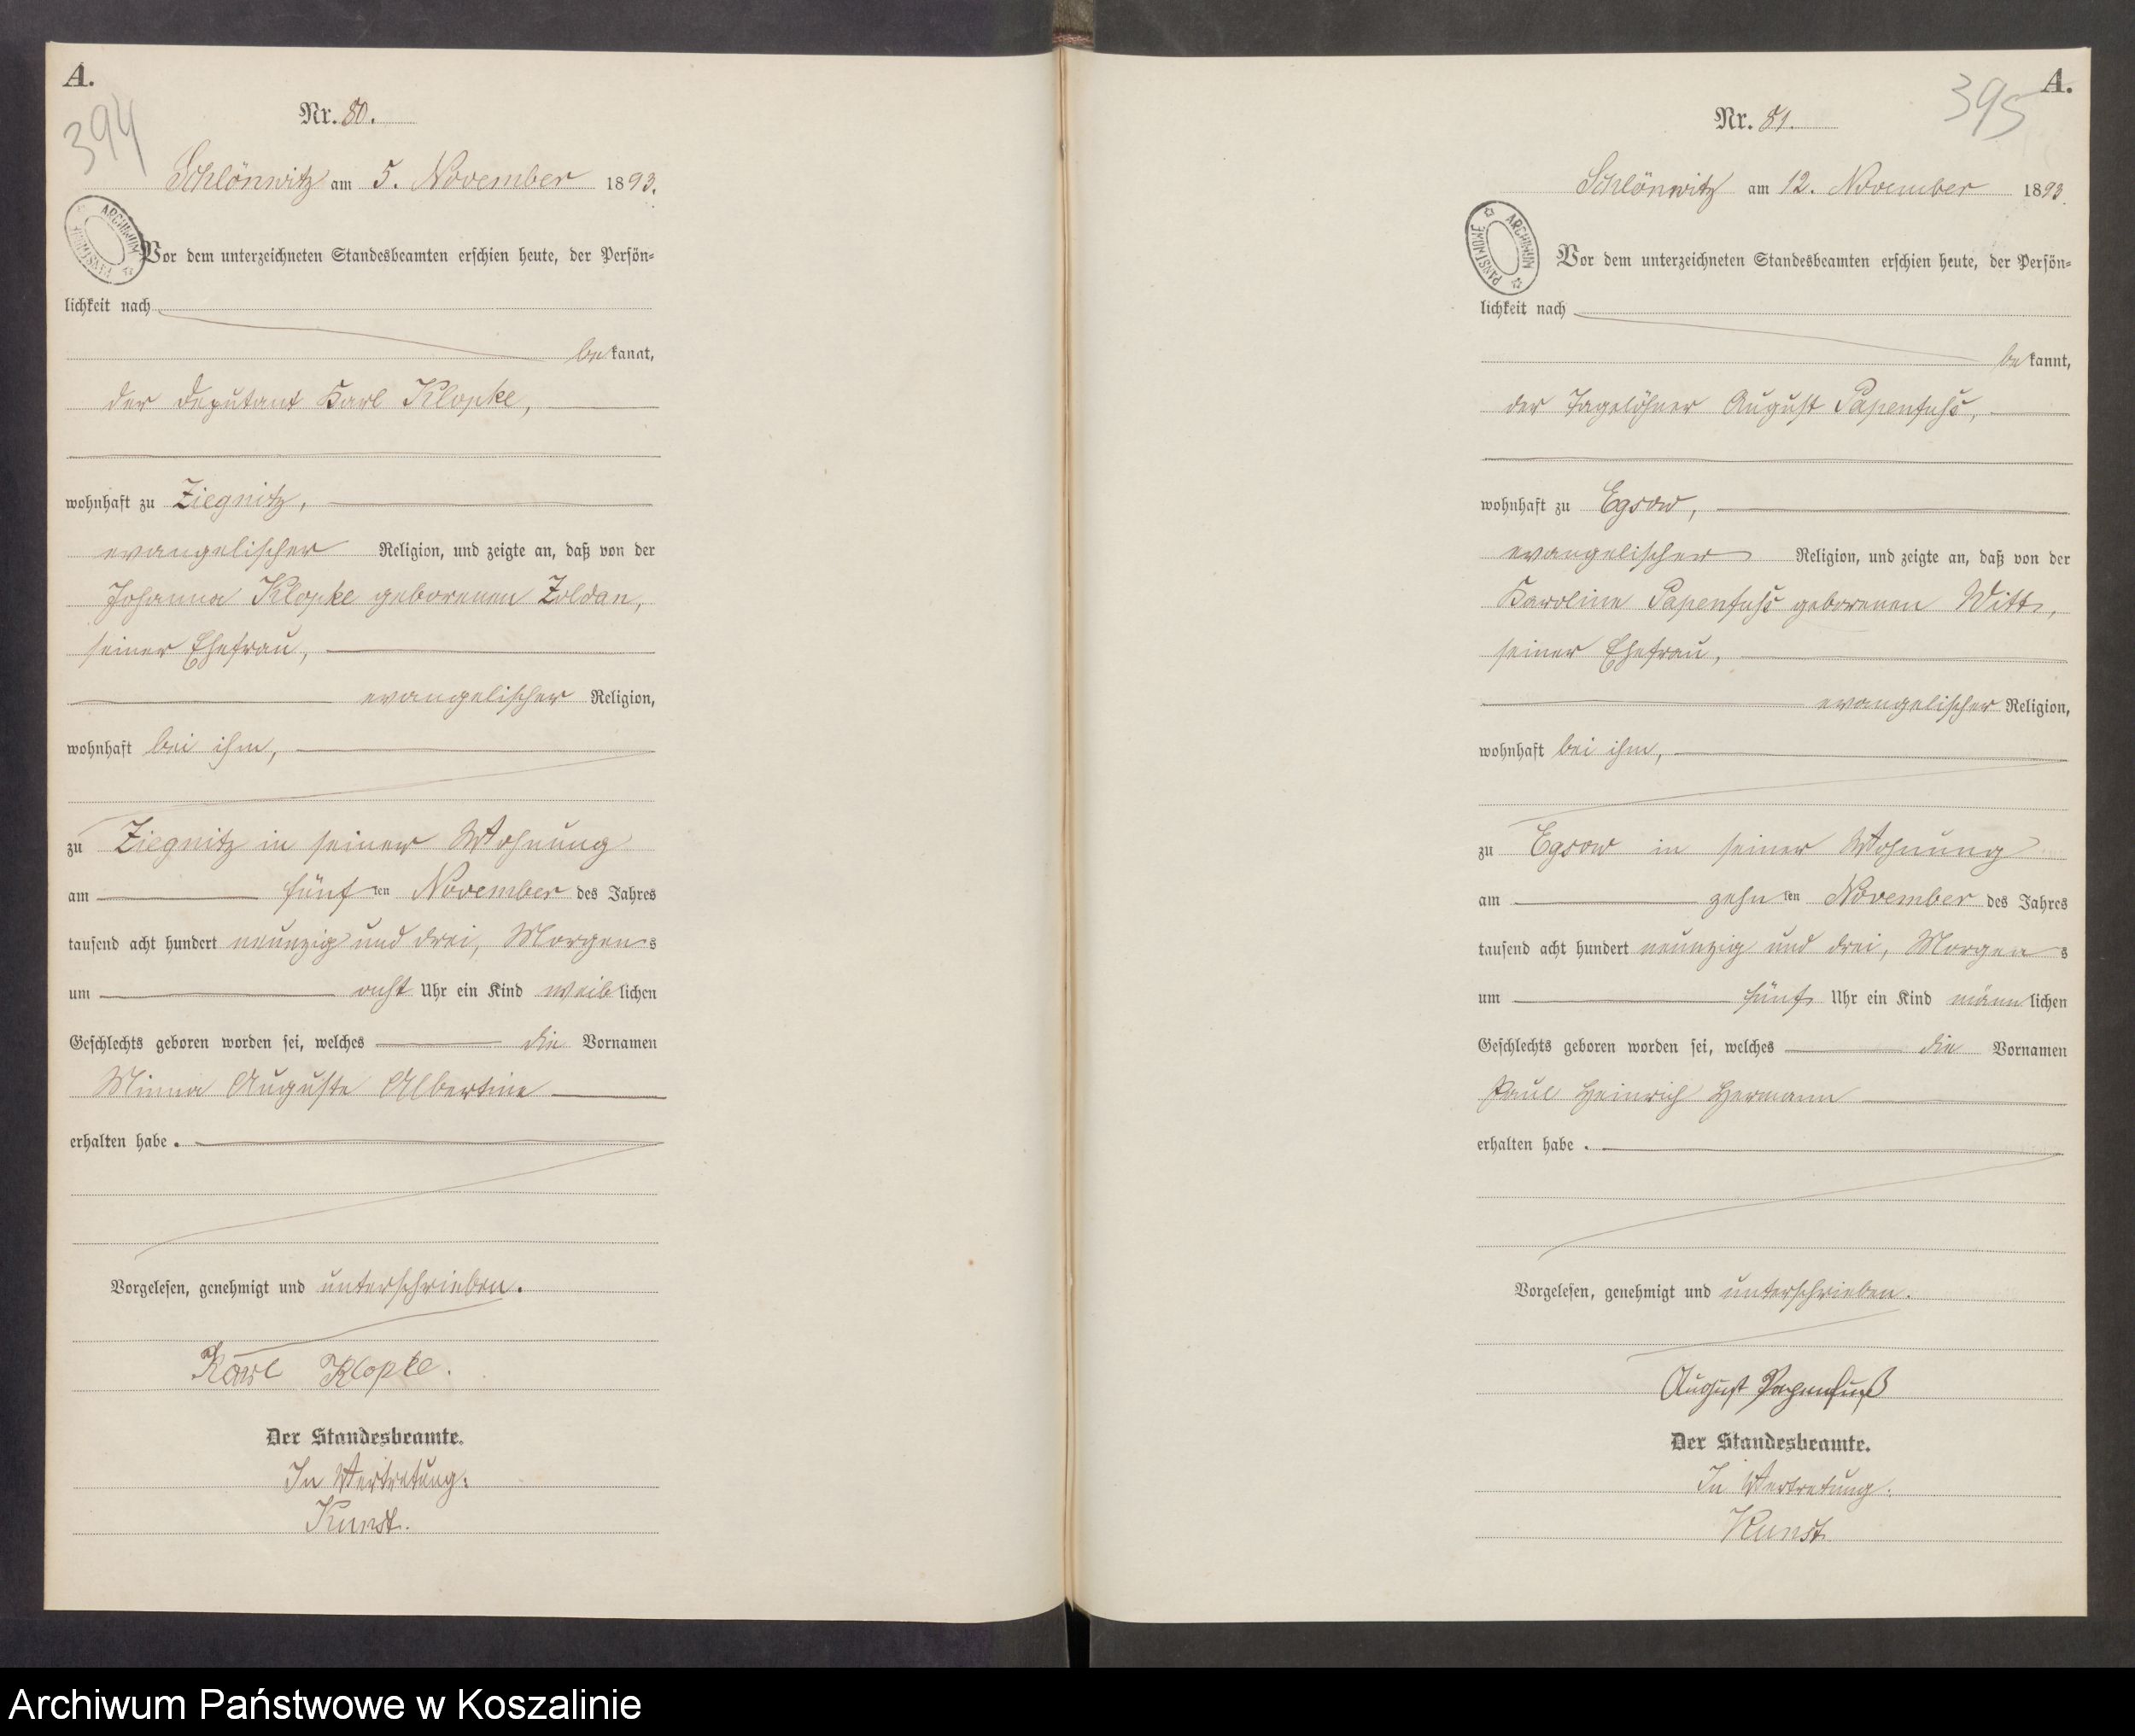 A.
394
Nr. 80.
Schlönwitz am 5. November 1893.
ARCHIWUM PAŃSTWOWE
Vor dem unterzeichneten Standesbeamten erschien heute, der Persön-
lichkeit nach
bekannt,
der Deputant Karl Klopke,
wohnhaft zu Ziegnitz,
evangelischer Religion, und zeigte an, daß von der
Johanna Klopke geborenen Zoldan,
seiner Ehefrau,
evangelischer Religion,
wohnhaft bei ihm,
zu Ziegnitz in seiner Wohnung
am fünften November des Jahres
tausend acht hundert neunzig und drei, Morgens
um acht Uhr ein Kind weiblichen
Geschlechts geboren worden sei, welches die Vornamen
Minna Auguste Albertine
erhalten habe.
Vorgelesen, genehmigt und unterschrieben.
Karl Klopke.
Der Standesbeamte.
In Vertretung:
Kunst.
A.
395
Nr. 81.
Schlönwitz am 12. November 1893.
ARCHIWUM PAŃSTWOWE
Vor dem unterzeichneten Standesbeamten erschien heute, der Persön-
lichkeit nach
bekannt,
der Tagelöhner August Papenfuß,
wohnhaft zu Egsow,
evangelischer Religion, und zeigte an, daß von der
Karoline Papenfuß geborenen Witt,
seiner Ehefrau,
evangelischer Religion,
wohnhaft bei ihm,
zu Egsow in seiner Wohnung
am zehnten November des Jahres
tausend acht hundert neunzig und drei, Morgens
um fünf Uhr ein Kind männlichen
Geschlechts geboren worden sei, welches die Vornamen
Paul Heinrich Hermann
erhalten habe.
Vorgelesen, genehmigt und unterschrieben.
August Papenfuß
Der Standesbeamte.
In Vertretung:
Kunst
Archiwum Państwowe w Koszalinie